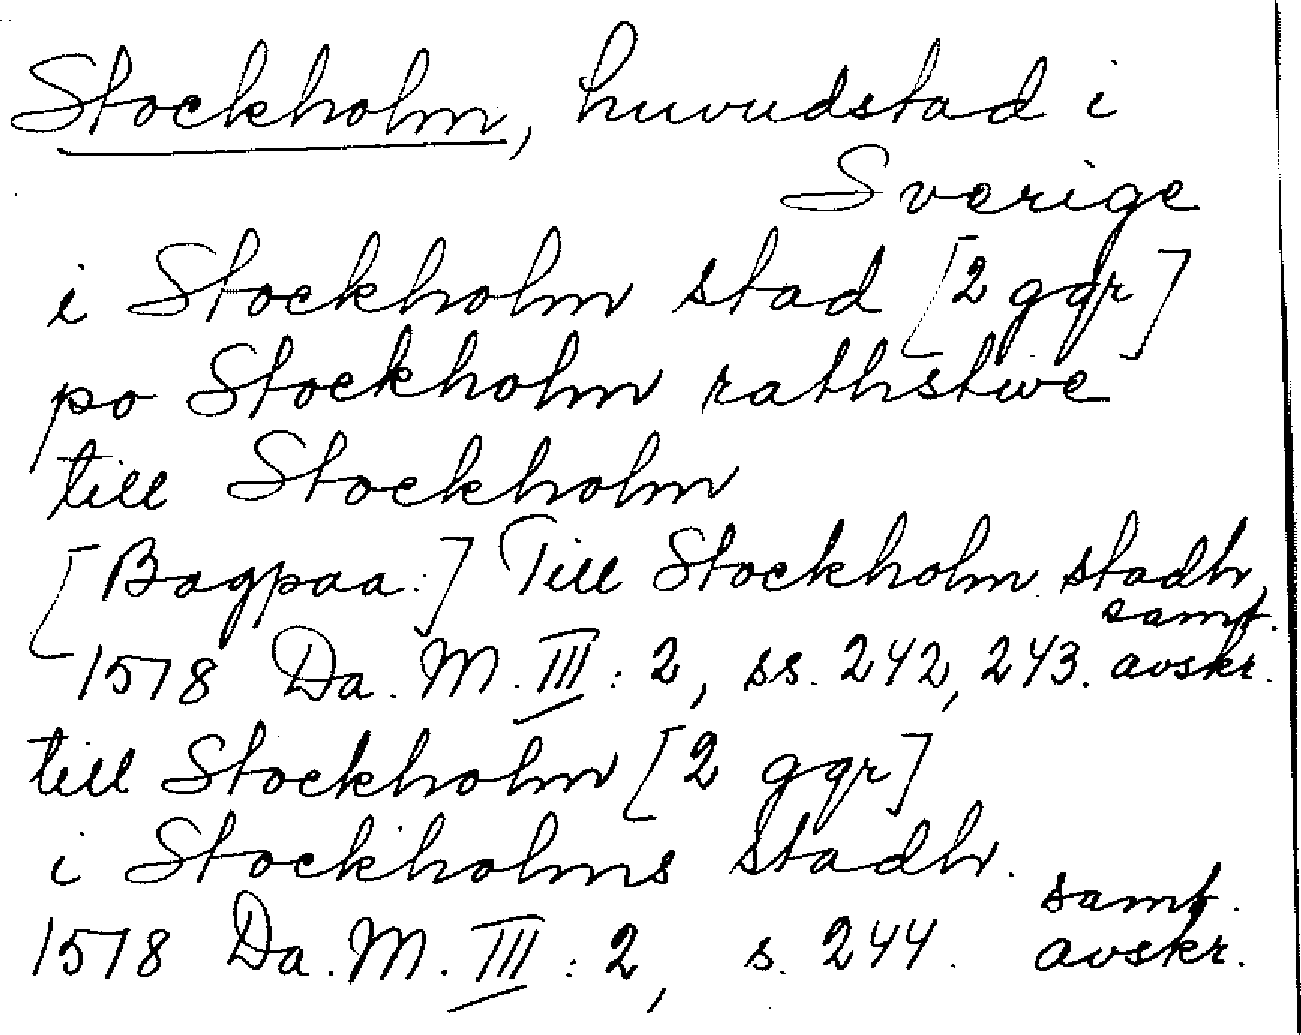 Stockholm, huvudstad i
Sverige
i Stockholm stad [2 ggr]
po Stockholm rathstwe
till Stockholm
[Bagpaa:] Till Stockholm stadh
samt.
1578 Da. M. III: 2, ss. 242, 243. avskr.
till Stockholm [2 ggr]
i Stockholms stadh.
samt.
1578 Da. M. III: 2, s. 244. avskr.